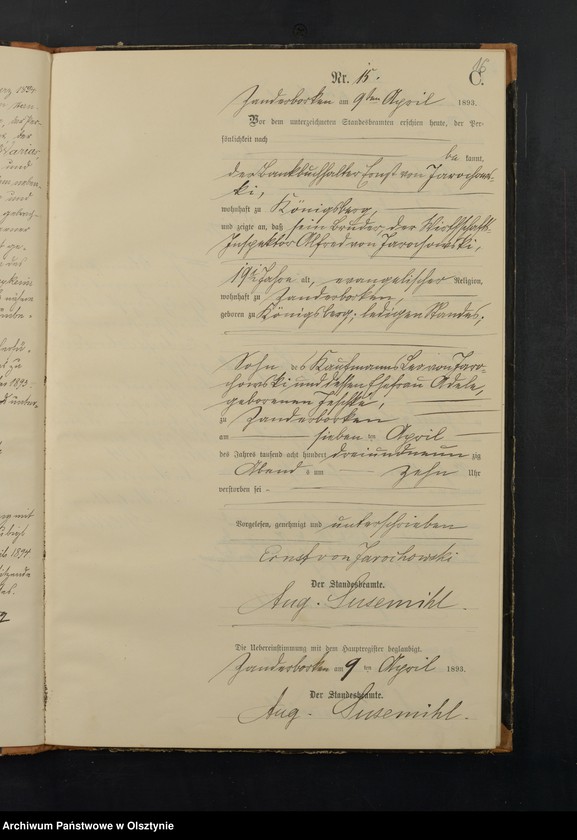 16
Nr. 15.
C.
Zanderborken am 9ten April 1893.
Vor dem unterzeichneten Standesbeamten erschien heute, der Per-
sönlichkeit nach
be kannt,
der Bankbuchhalter Ernst von Jarochows-
ki,
wohnhaft zu Königsberg,
und zeigte an, daß sein Bruder, der Wirthschafts-
Inspektor Alfred von Jarochowski,
19½ Jahre alt, evangelischer Religion,
wohnhaft zu Zanderborken,
geboren zu Königsberg; ledigen Standes;
Sohn des Kaufmanns Leo von Jaro-
chowski und dessen Ehefrau Adele,
geborenen Jeschke,
zu Zanderborken
am sieben ten April
des Jahres tausend acht hundert dreiundneun zig
Abend s um zehn Uhr
verstorben sei
Vorgelesen, genehmigt und unterschrieben
Ernst von Jarochowski
Der Standesbeamte.
Aug. Susemihl.
Die Uebereinstimmung mit dem Hauptregister beglaubigt.
Zanderborken am 9 ten April 1893.
Der Standesbeamte.
Aug. Susemihl.
Archiwum Państwowe w Olsztynie